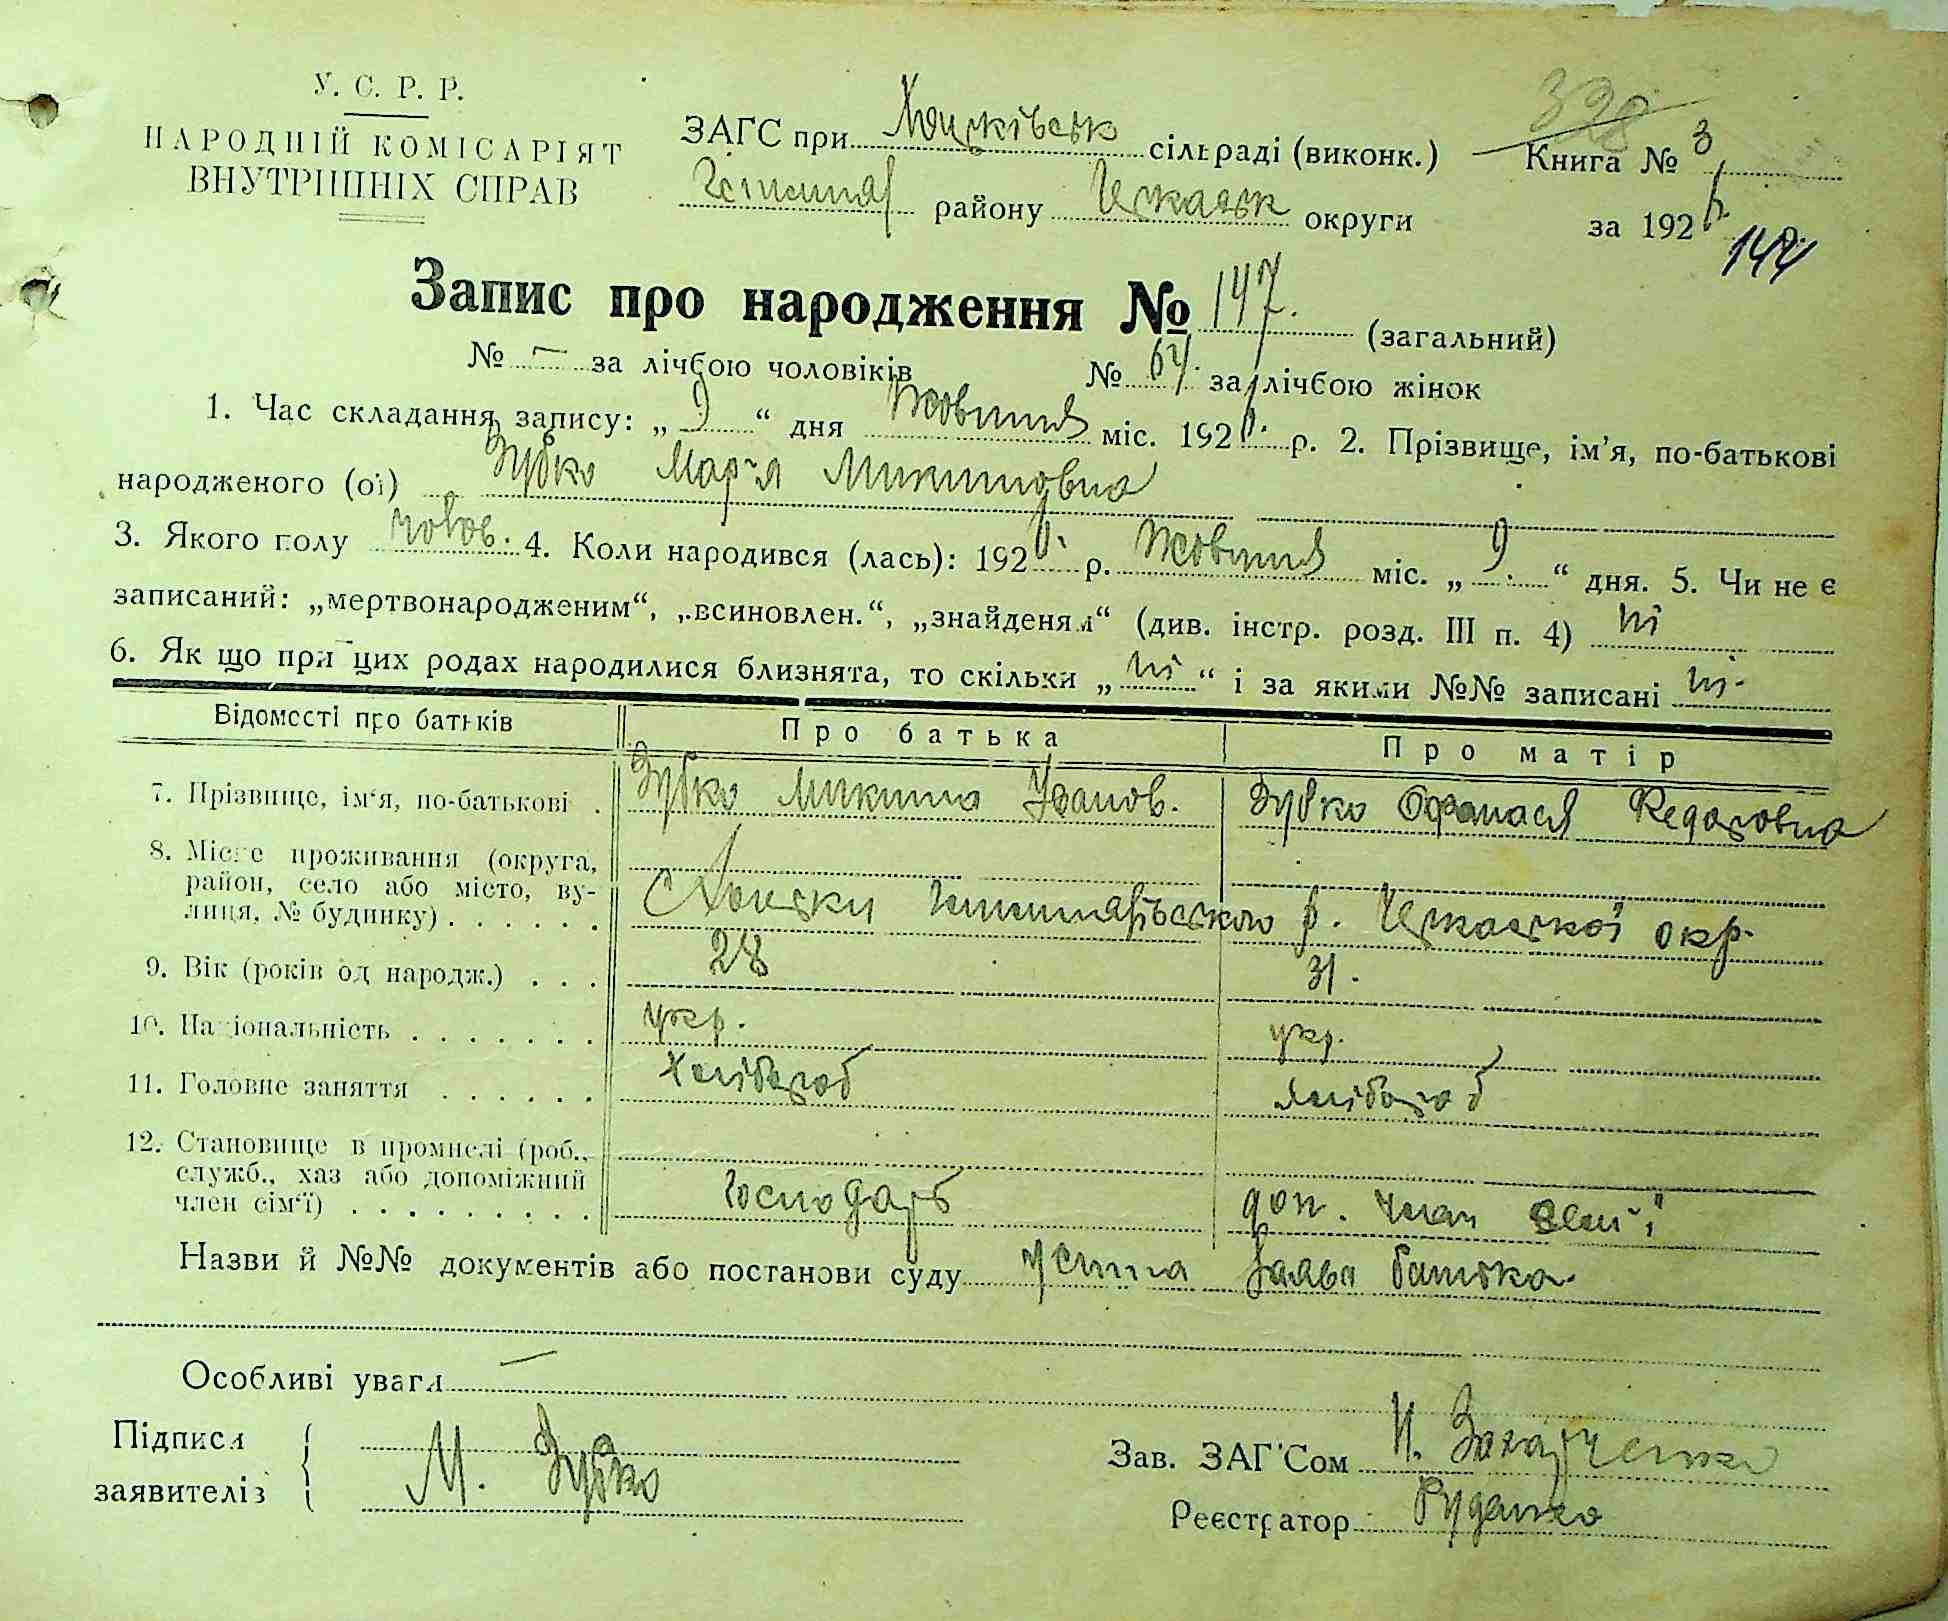 У. С. Р. Р.
НАРОДНІЙ КОМІСАРІЯТ
ВНУТРІШНІХ СПРАВ
ЗАГС при Хоцківськ сільраді (виконк.)
району Черкаськ округи
328
Книга № 3
за 192
144
Запис про народження № 147. (загальний)
№ — за лічбою чоловіків № 64. за лічбою жінок
1. Час складання запису: „ 9 “ дня Жовтня міс. 192 р. 2. Прізвище, ім'я, по-батькові
народженого (ої) Зубко Мар'я Микитовна
3. Якого полу 4. Коли народився (лась): 192 р. Жовтня міс. „ 9. “ дня. 5. Чи не є
записаний: „мертвонародженим“, „всиновлен.“, „знайденям“ (див. інстр. розд. III п. 4) ні
6. Як що при цих родах народилися близнята, то скільки „ ні “ і за якими №№ записані ні.
Відомості про батьків Про батька Про матір
7. Прізвище, ім'я, по-батькові . Зубко Микита Іванов. Зубко Федоровна
8. Місце проживання (округа,
район, село або місто, ву-
лиця, № будинку) . . . . . . С Хоцьки р. Черкаської окр.
9. Вік (років од народж.) . . . 28 31.
10. Національність . . . . . . . укр. укр.
11. Головне заняття . . . . . . Хлібороб Хлібороб
12. Становище в промислі (роб.,
служб., хаз або допоміжний
член сім'ї) . . . . . . . . . Господарь доп. член сем'ї
Назви й №№ документів або постанови суду устна заява батька.
Особливі уваги —
Підписи
заявителів М. Зубко
Зав. ЗАГ'Сом Н. Захарченко
Реєстратор Руденко